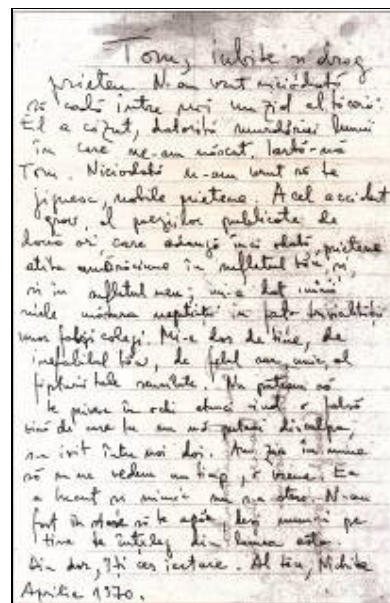 Tom, iubite și drag
prieten. N-am vrut niciodată
să cadă între noi un zid al tăcerii.
El a căzut, datorită murdăriei lumii
în care ne-am născut. Iartă-mă
Tom. Niciodată n-am vrut să te
jignesc, nobile prietene. Acel accident
grav, al poeziilor publicate de
două ori care adaugă încă odată, prietene
atîta amărăciune în sufletul tău, și,
și în sufletul meu, mi-a dat
miele măsura neputinței în fața trivialității
unor falși colegi. Mi-e dor de tine, de
inefabilul tău, de felul rar, unic, al
făpturii tale sensibile. Nu puteam să
te privesc în ochi atunci cînd o falsă
vină de care nu am mă puteai disculpa,
s-a ivit între noi doi. Am zis în mine
să nu ne vedem un timp, o vreme. Ea
a trecut și nimic nu s-a șters. N-am
fost în stare să te apăr, deși numai pe
tine te înțeleg din lumea asta.
Din dor, îți cer iertare. Al tău, Nichita
Aprilie 1970.